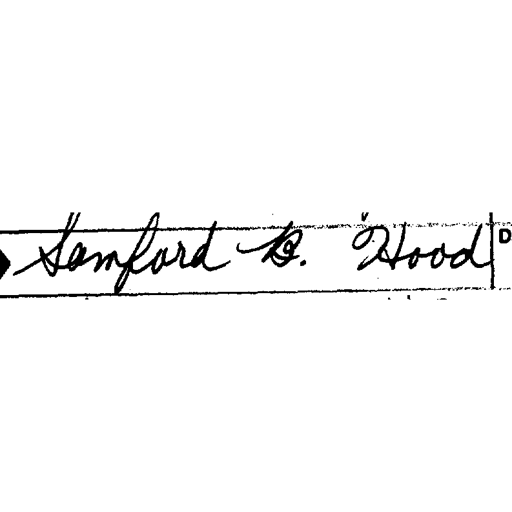 Samford B. Hood D